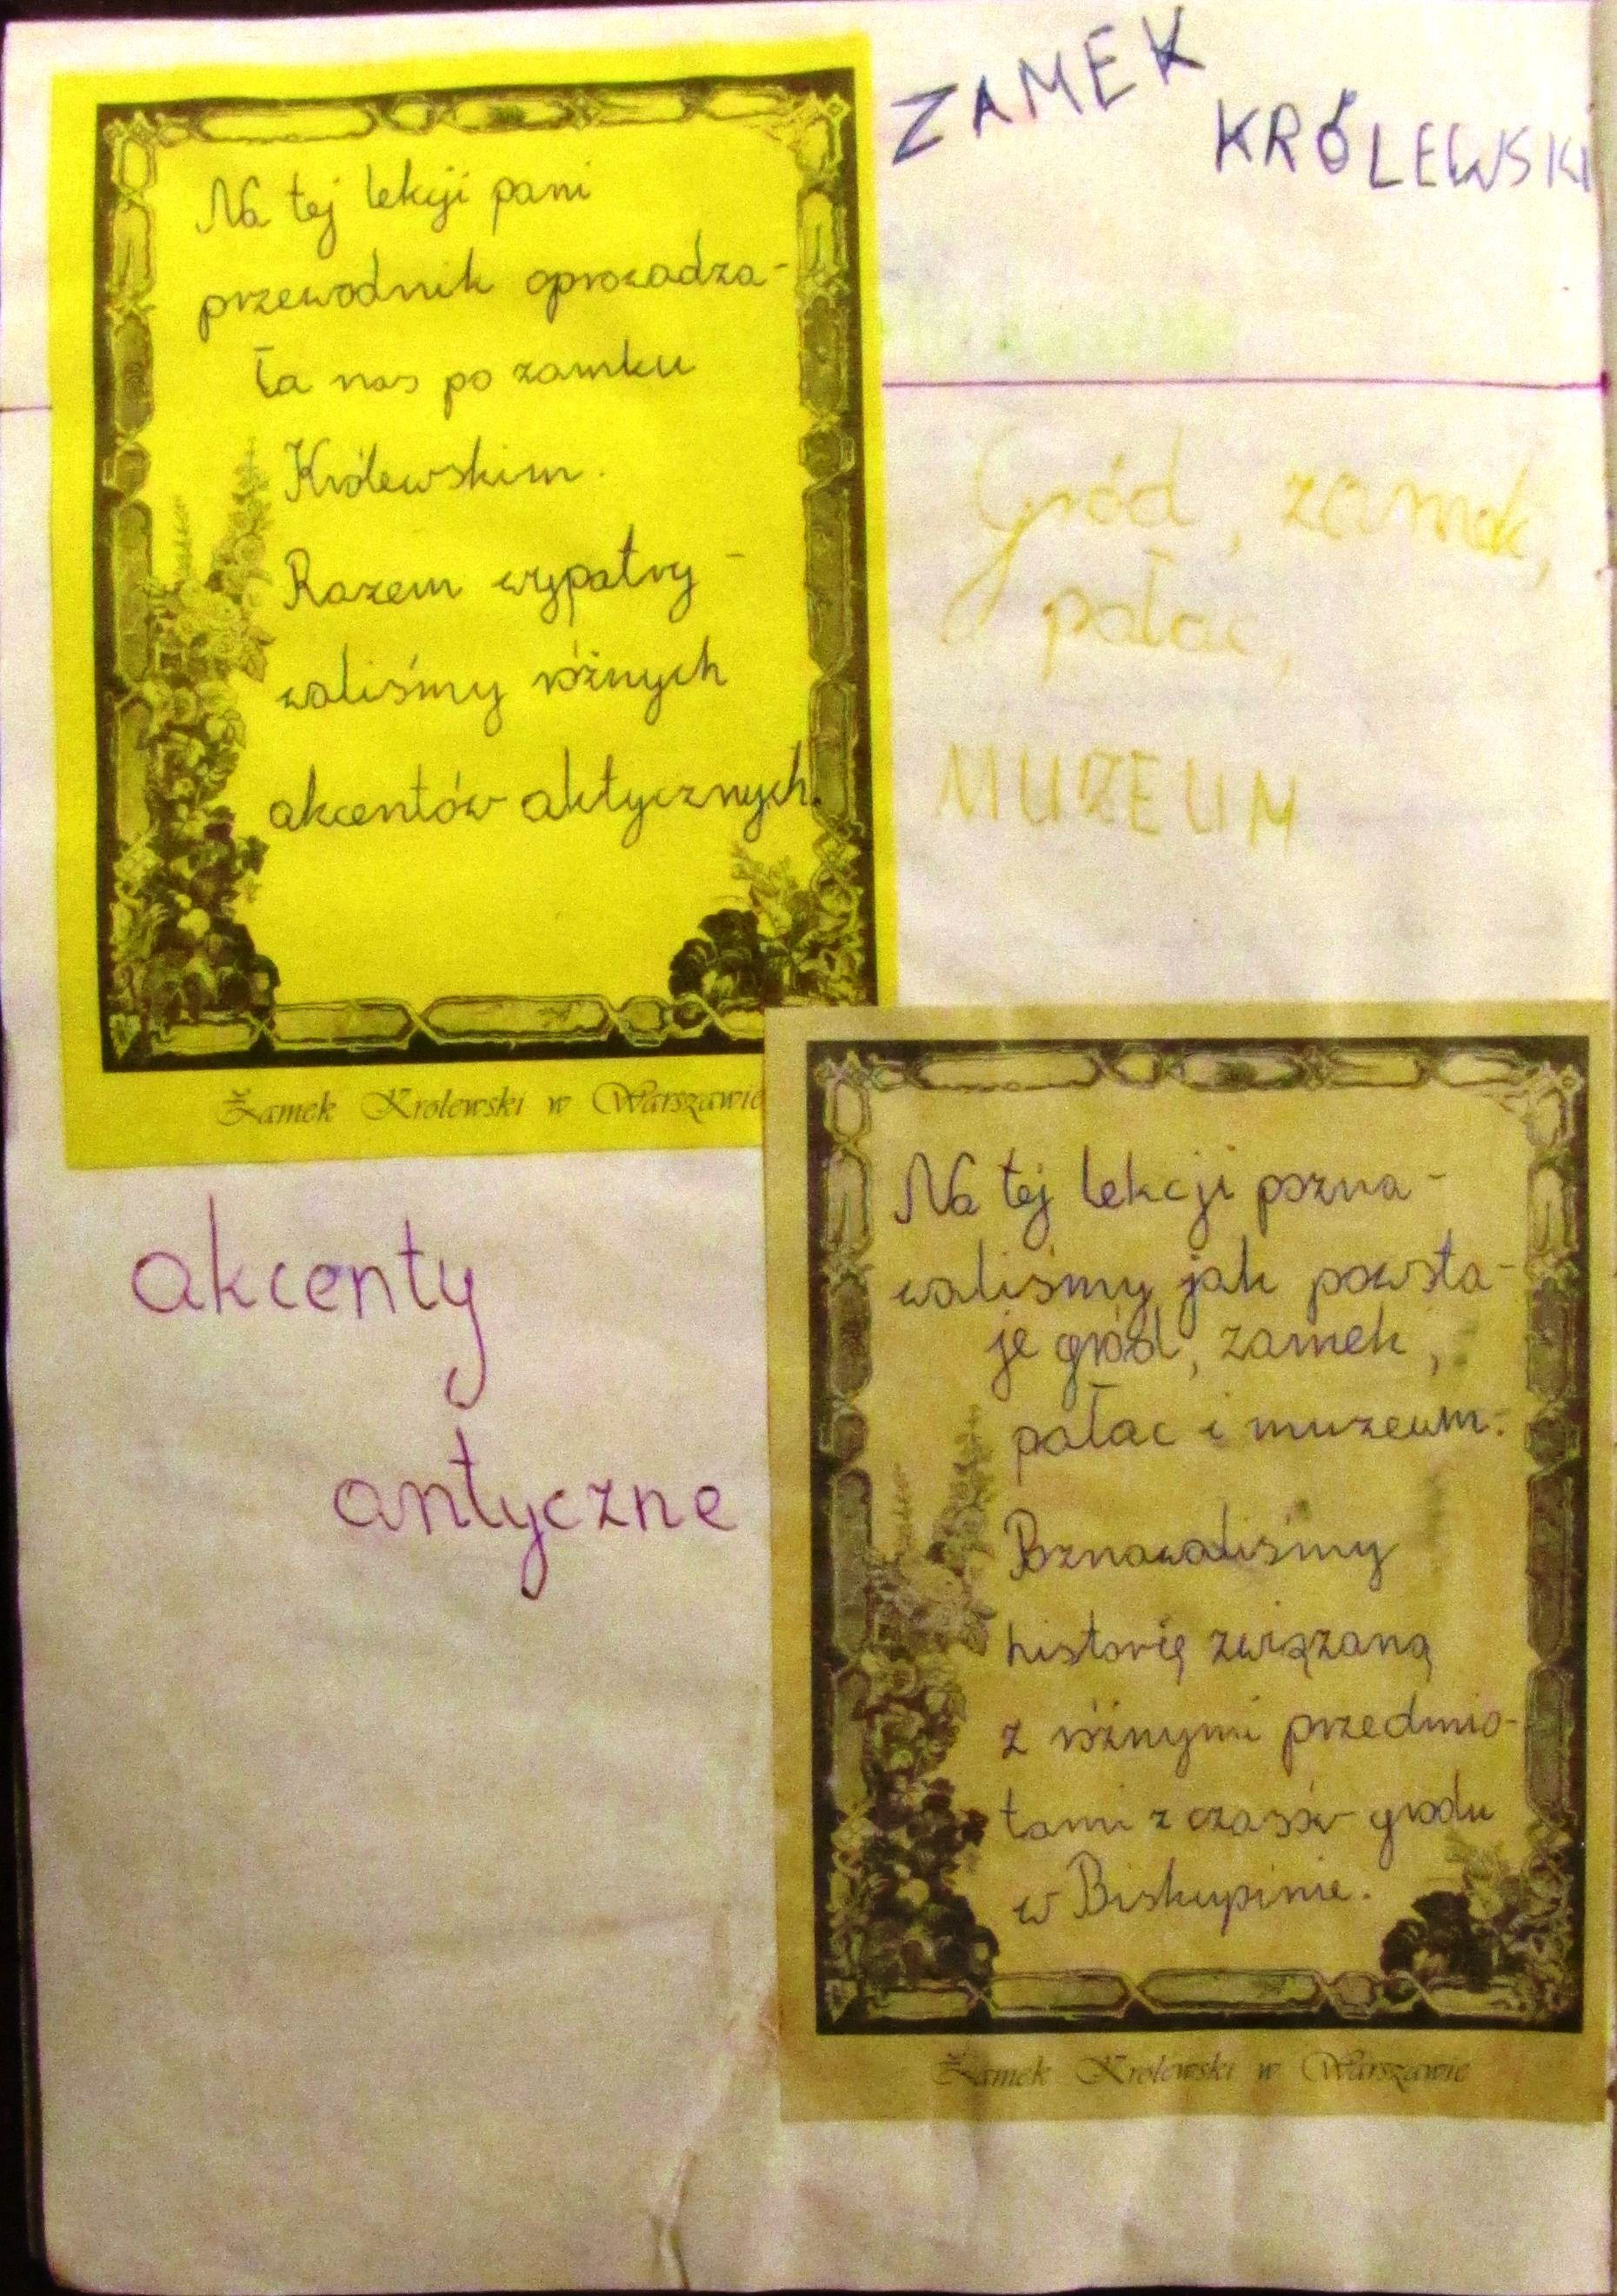 ZAMEK
KRÓLEWSKI
Na tej lekcji pani
przewodnik oprowadza-
ła nas po zamku
Królewskim.
Razem wypatry-
waliśmy różnych
akcentów aktycznych.
Zamek Królewski w Warszawie
Gród, zamek,
pałac,
MUZEUM
akcenty
antyczne
Na tej lekcji pozna-
waliśmy jak powsta-
je gród, zamek,
pałac i muzeum.
Poznawaliśmy
historię związaną
z różnymi przedmio-
tami z czasów grodu
w Biskupinie.
Zamek Królewski w Warszawie